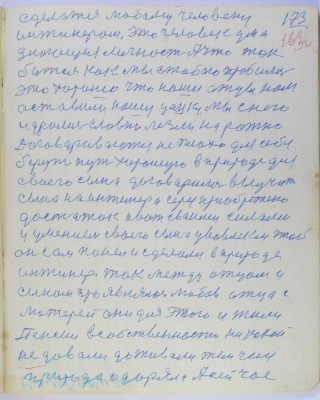 сделатся любому человеку 173
инжинером, это человек ума 163
знающия личность А что так
бытся как мы стабно пробыли
это хорошо что наши отцы нам
оставили нашу
и дрались словно лезли на рожно
договаривалися не плохо для себя
берут путь хорошую в природе для
своего сына договорились выучить
сына на инжинера сери приобретено
достаток и вот своими силами
и умением своего сына увлекли чтоб
он сам понял и сделали в природе
инжинер так между отцом и
сыном проявилися любов отца с
матерей они для этого и жили
Пенсии в собственности никакой
не довали доживали тем чем
природа одаряла А сейчас